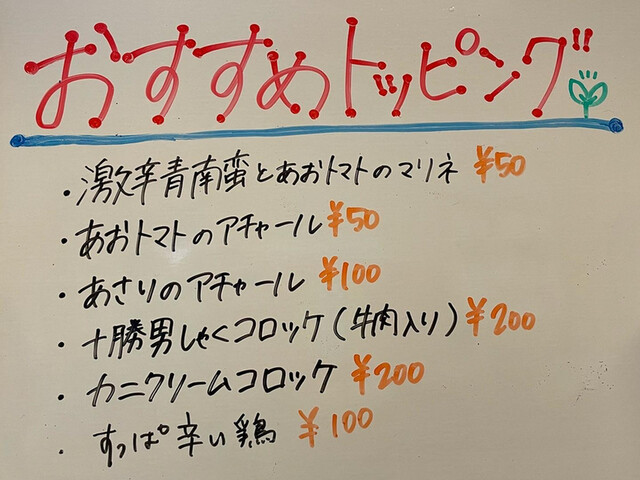 おすすめトッピング!!
・激辛青南蛮とあおトマトのマリネ ¥50
・あおトマトのアチャール ¥50
・あさりのアチャール ¥100
・十勝男しゃくコロッケ(牛肉入り) ¥200
・カニクリームコロッケ ¥200
・すっぱ辛い鶏 ¥100